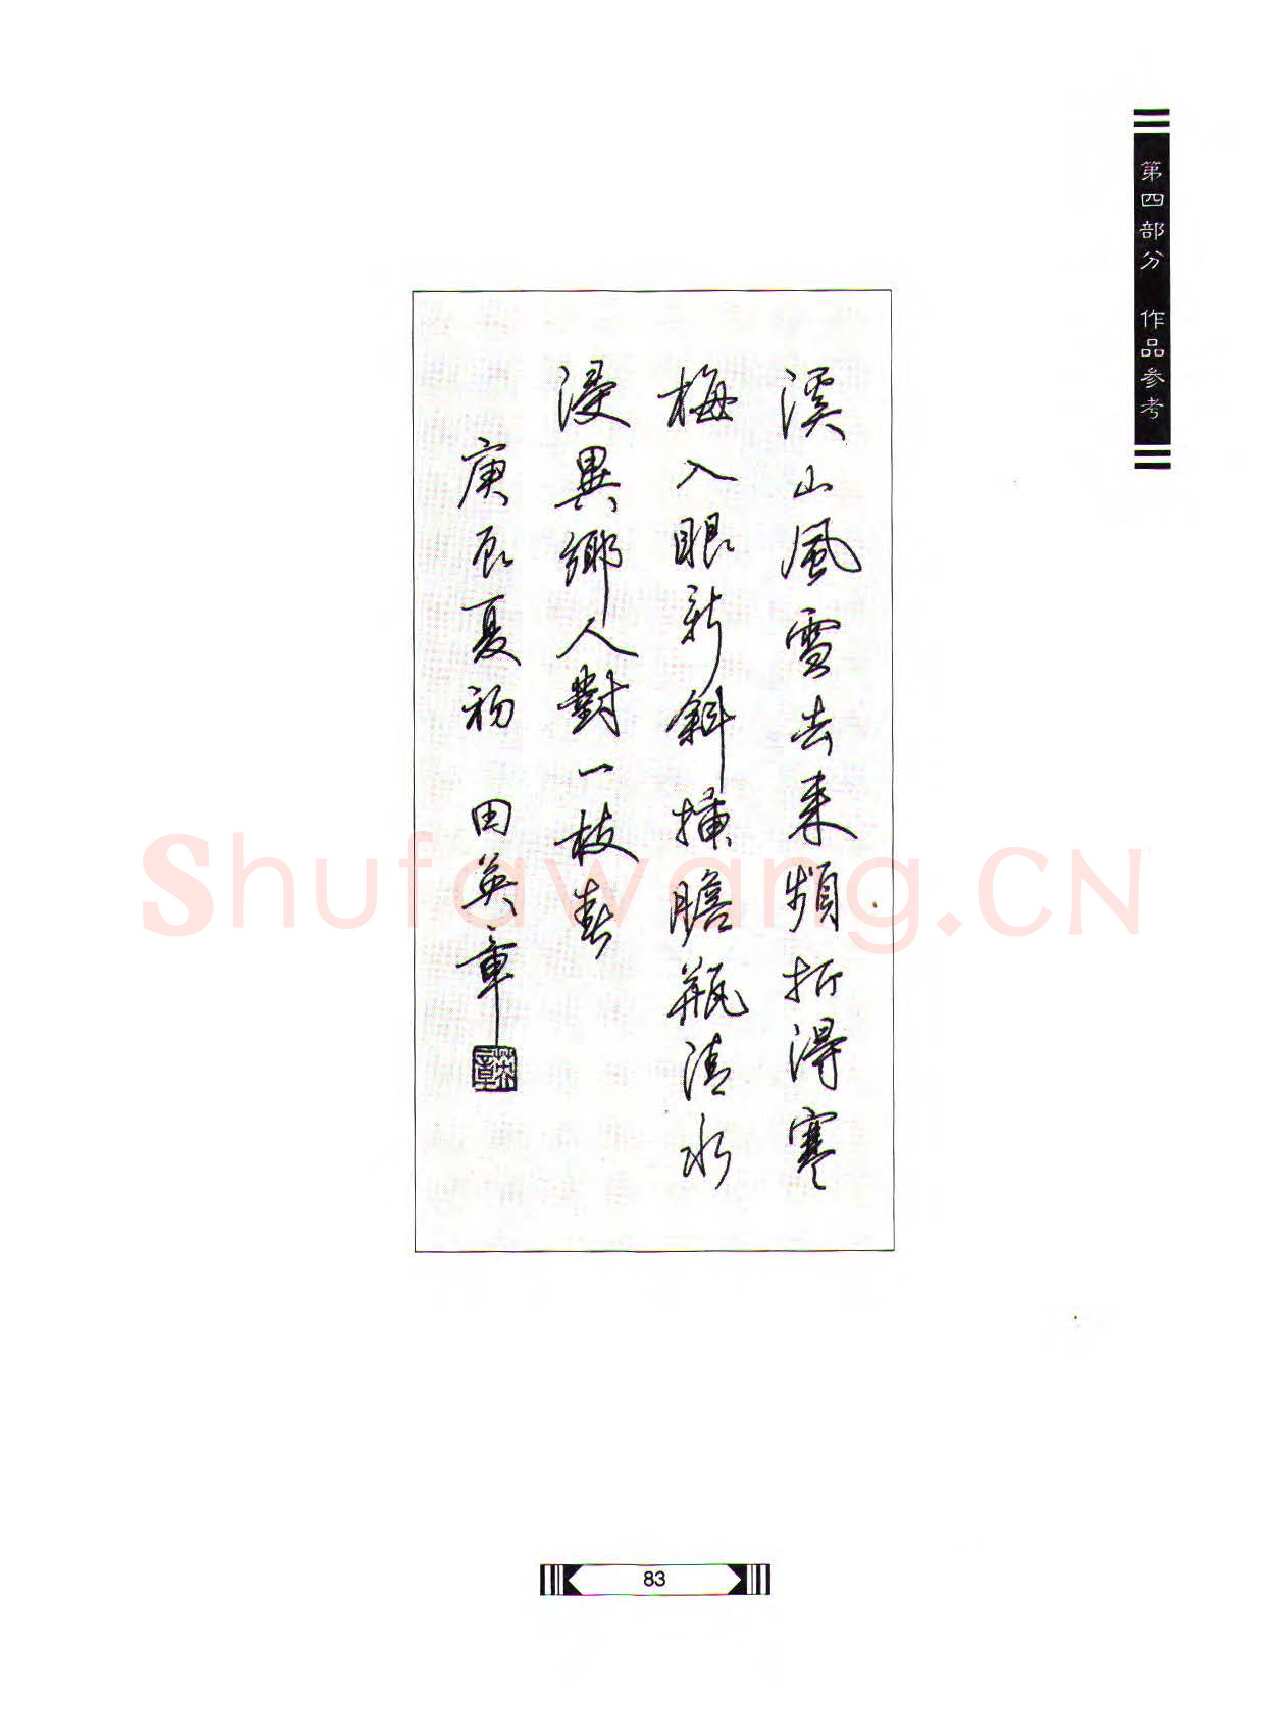 第四部分 作品参考
溪山風雪去來頻折得寒
梅入眼新斜插膽瓶清水
浸異鄉人對一枝春
庚辰夏初 田英章
英章
Shufawang.CN
83